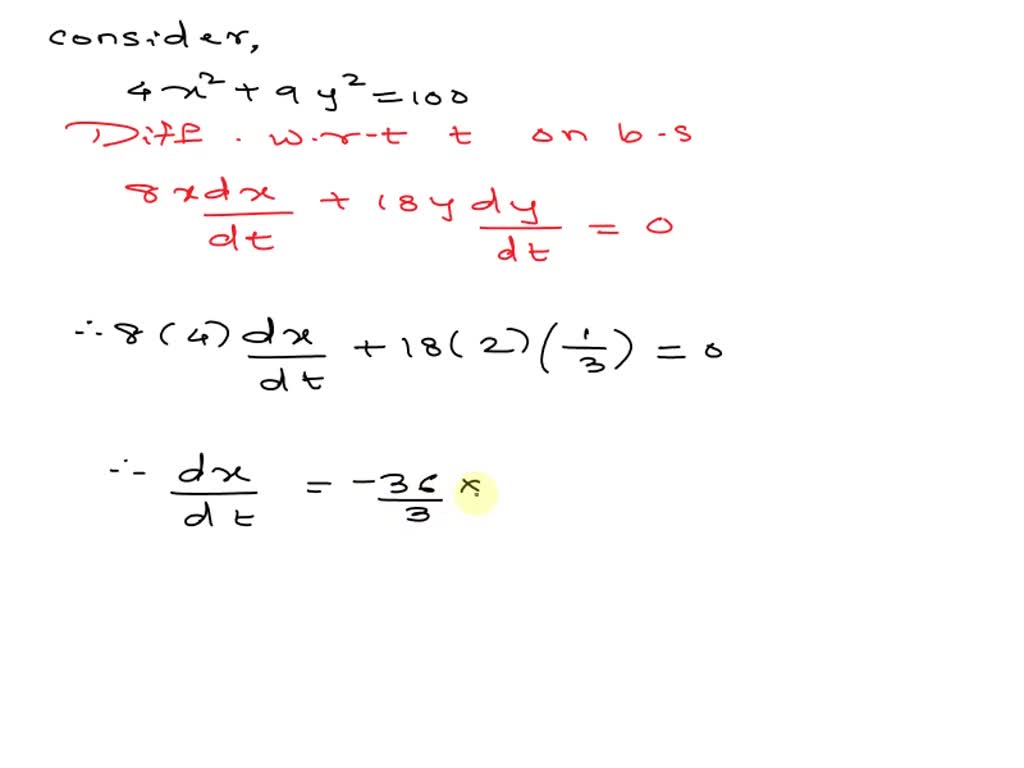 consider,
4x² + 9y² = 100
Diff. w.r.t t on b.s
8x dx/dt + 18y dy/dt = 0
∴ 8(4) dx/dt + 18(2)(1/3) = 0
∴ dx/dt = -36/3 ×